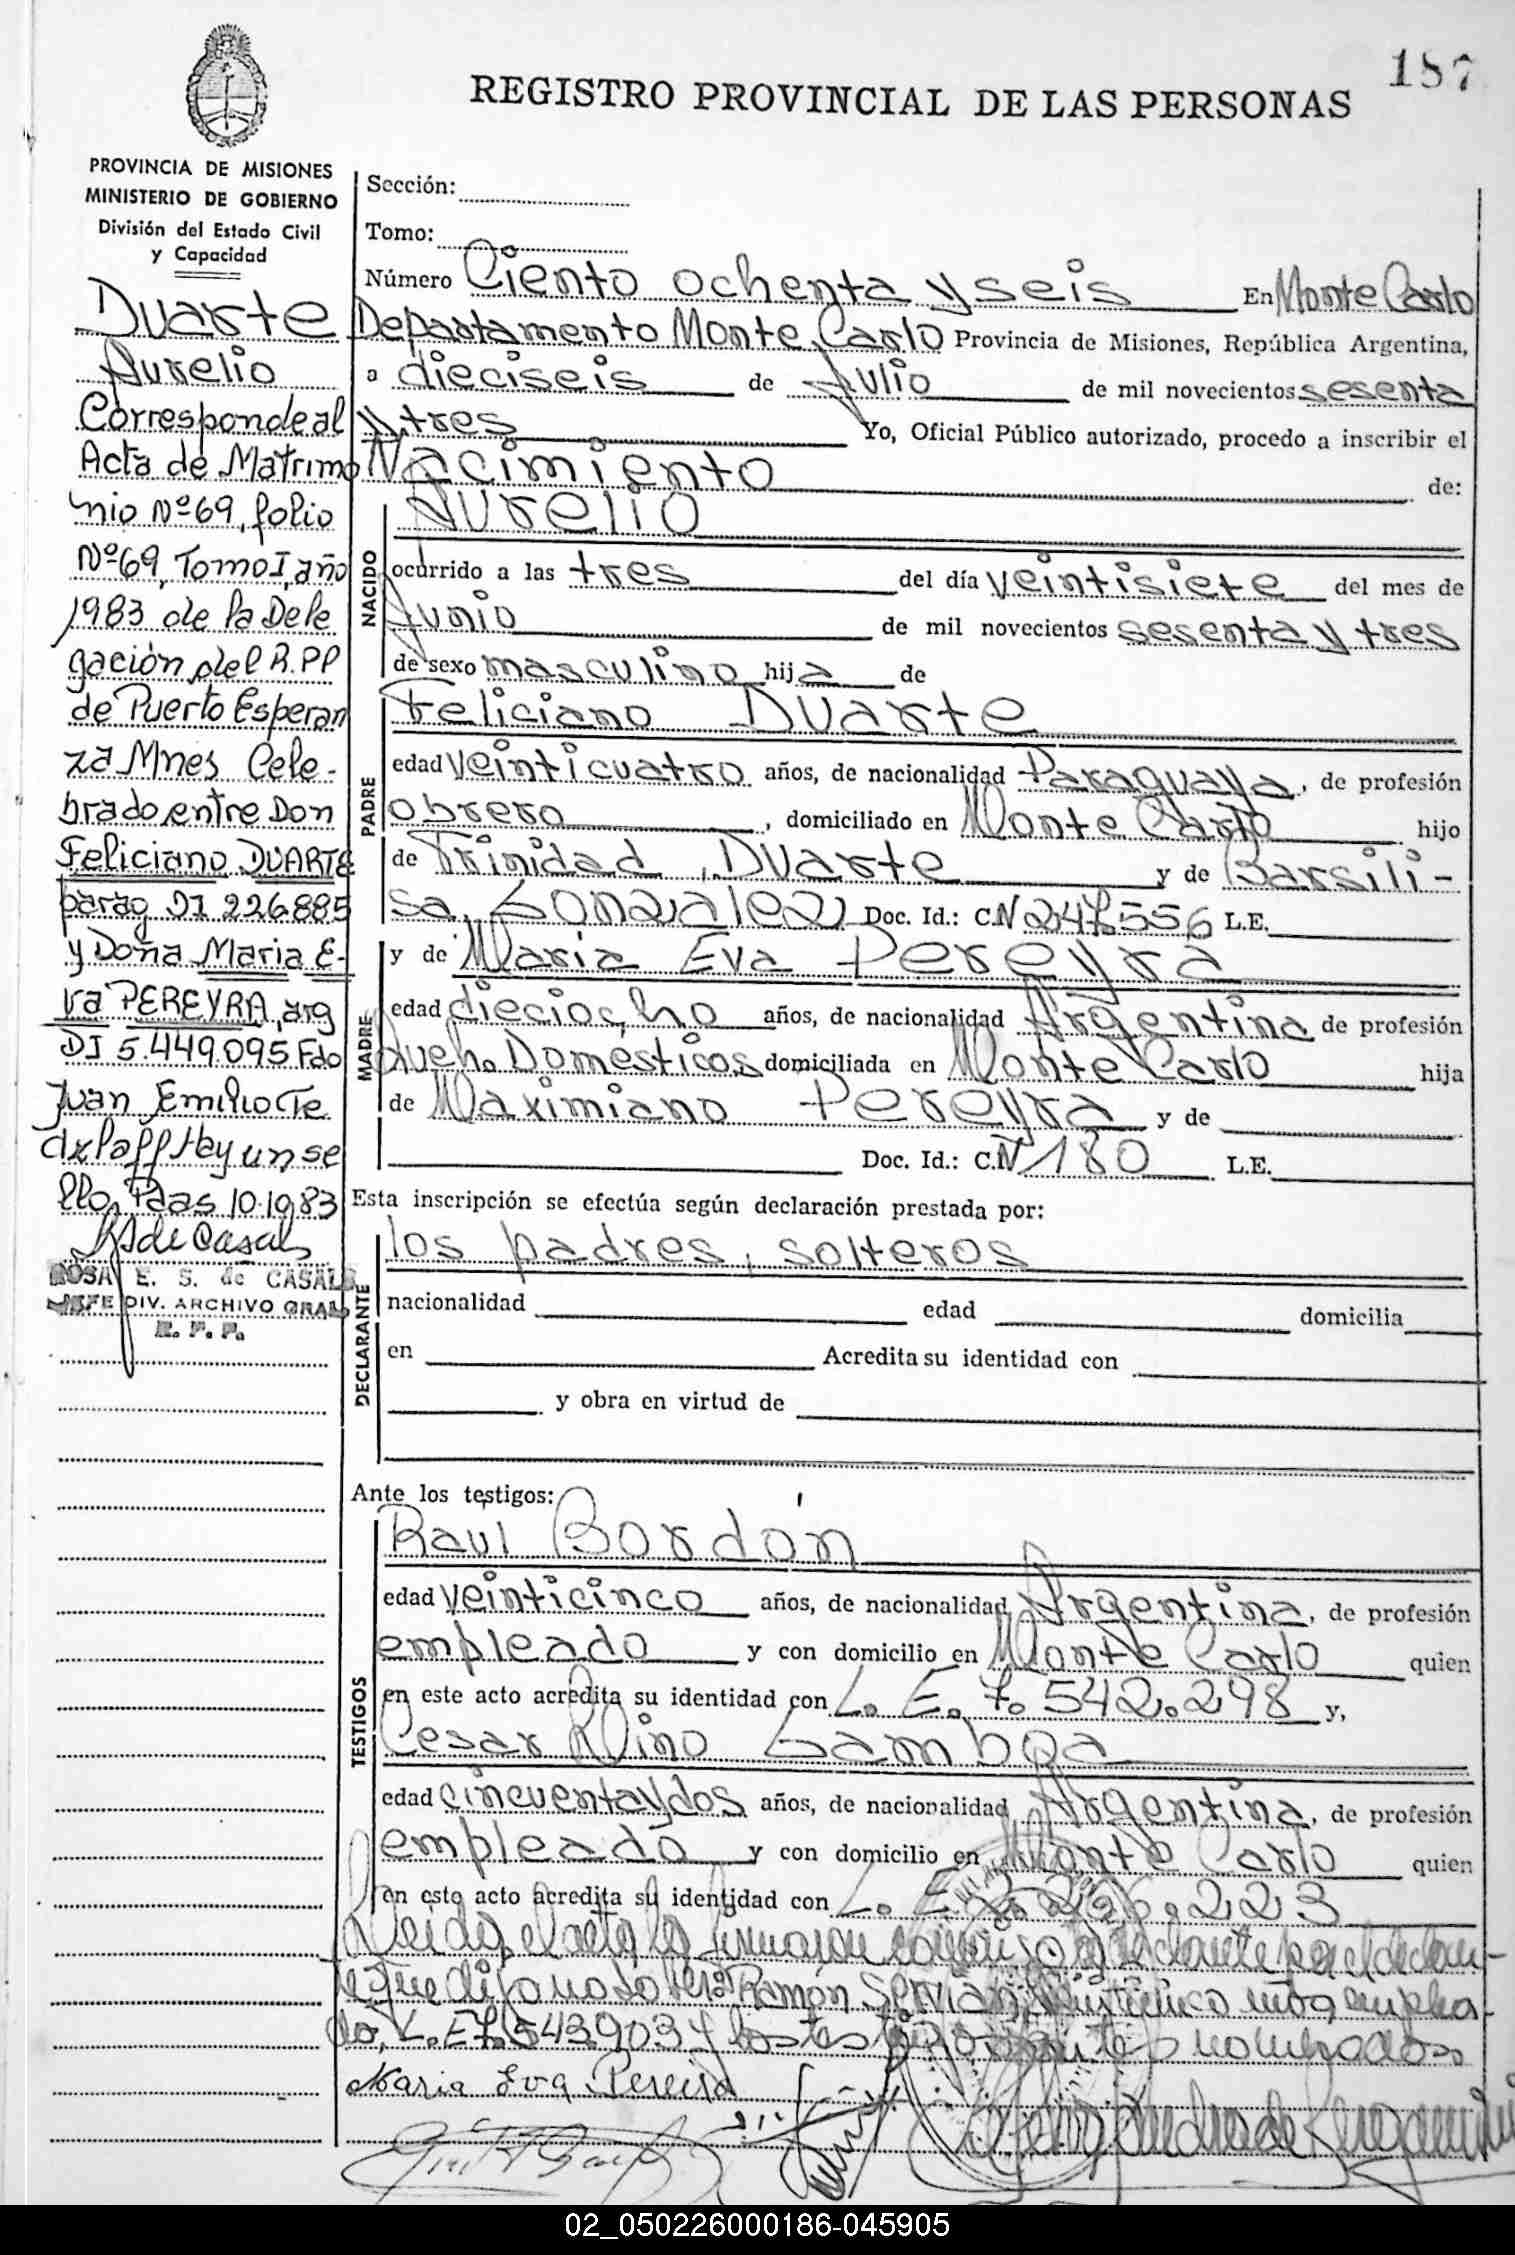 187
REGISTRO PROVINCIAL DE LAS PERSONAS
PROVINCIA DE MISIONES
MINISTERIO DE GOBIERNO
División del Estado Civil
y Capacidad
Duarte
Aurelio
Corresponde al
Acta de Matrimo
nio Nº 69, folio
Nº 69, Tomo I, año
1983 de la Dele
gación del R.PP
de Puerto Esperan
za Mnes Cele-
brado entre Don
Feliciano DUARTE
parag DI 226885
y Doña Maria E-
va PEREYRA, arg
DI 5.449.095 Fdo
Juan Emilio
Hay un se
llo, Pdas 10.10.83
RS de Casals
ROSA E. S. de CASALS
JEFE DIV. ARCHIVO GRAL
R. P. P.
Sección:
Tomo:
Número Ciento ochenta y seis En Monte Carlo
Departamento Monte Carlo Provincia de Misiones, República Argentina,
a dieciseis de Julio de mil novecientos sesenta
y tres Yo, Oficial Público autorizado, procedo a inscribir el
Nacimiento de:
NACIDO
Aurelio
ocurrido a las tres del día veintisiete del mes de
Junio de mil novecientos sesenta y tres
de sexo masculino hij de
PADRE
Feliciano Duarte
edad veinticuatro años, de nacionalidad Paraguaya, de profesión
obrero, domiciliado en Monte Carlo hijo
de Trinidad Duarte y de Barsili-
sa Gonzalez Doc. Id.: C.N 247.556 L.E.
MADRE
y de Maria Eva Pereyra
edad dieciocho años, de nacionalidad Argentina de profesión
Queh. Domésticos domiciliada en Monte Carlo hija
de Maximiano Pereyra y de
Doc. Id.: C.N 180 L.E.
Esta inscripción se efectúa según declaración prestada por:
DECLARANTE
los padres, solteros
nacionalidad edad domicilia
en Acredita su identidad con
y obra en virtud de
Ante los testigos:
TESTIGOS
Raul Bordón
edad veinticinco años, de nacionalidad Argentina, de profesión
empleado y con domicilio en Monte Carlo quien
en este acto acredita su identidad con L. E. 7.542.298 y,
Cesar Lino Gamboa
edad cincuenta y dos años, de nacionalidad Argentina, de profesión
empleado y con domicilio en Monte Carlo quien
en este acto acredita su identidad con L. E. 226.223
Leida el acta la firmaron conmigo la declarante por el declaran-
te que dijo no saber Ramón
do, L. E. 7.543.903 y los testigos antes nombrados
Maria Eva Pereira
02_050226000186-045905